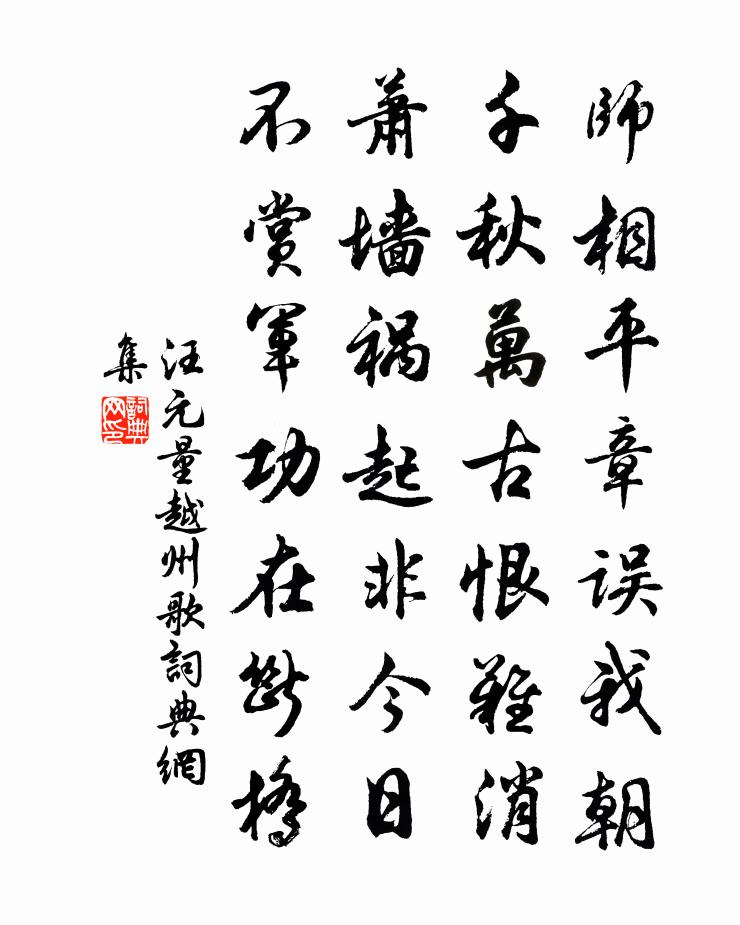 師相平章误我朝
千秋萬古恨難消
萧墙祸起非今日
不赏軍功在斷橋
汪元量越州歌詞典網
集
詞典
网印